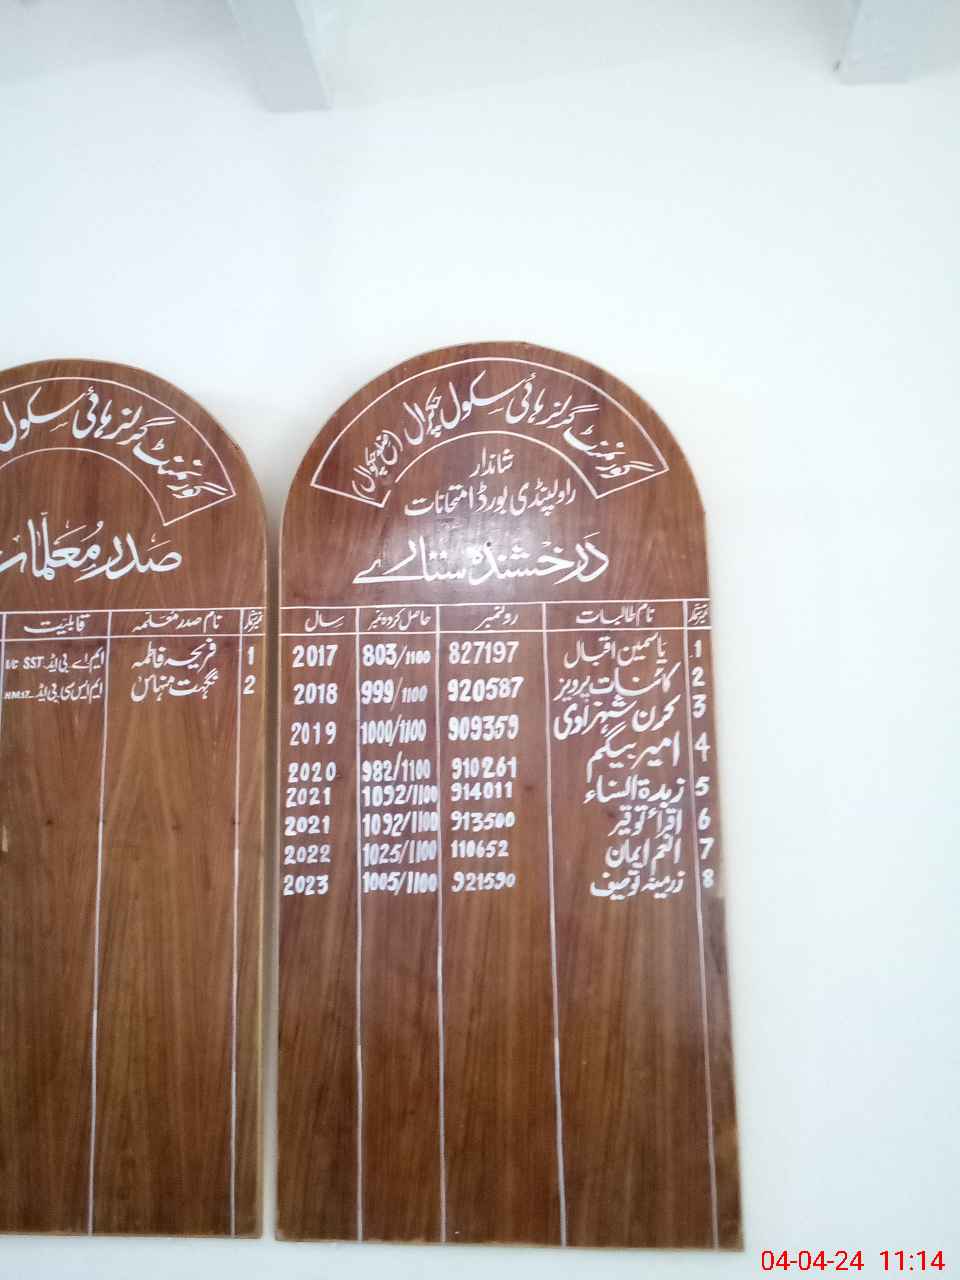 گورنمنٹ گرلز ہائی سکول چکوال (ضلع چکوال)
شاندار
راولپنڈی بورڈ امتحانات
درخشندہ ستارے
نمبر شمار نام طالبات رولنمبر حاصل کردہ نمبر سال
1 یاسمین اقبال 827197 803/1100 2017
2 کائنات پرویز 920587 999/1100 2018
3 کرن شہزادی 909359 1000/1100 2019
4 امیر بیگم 910261 982/1100 2020
5 زبدۃ النساء 914011 1092/1100 2021
6 اقراء توقیر 913500 1092/1100 2021
7 انعم ایمان 110652 1025/1100 2022
8 زرمینہ توصیف 921590 1005/1100 2023
گورنمنٹ گرلز ہائی سکول
صدر معلمات
نمبر شمار نام صدر معلمہ قابلیت
1 فریحہ فاطمہ ایم اے بی ایڈ I/C SST
2 نگہت منہاس ایم ایس سی بی ایڈ HM17
04-04-24 11:14